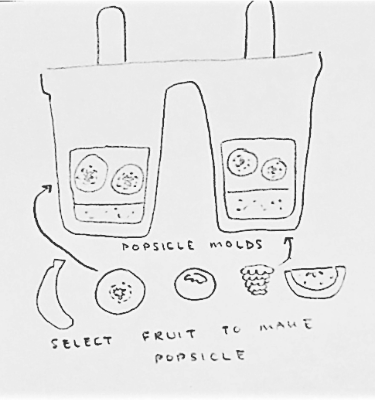 POPSICLE MOLDS
SELECT FRUIT TO MAKE
POPSICLE